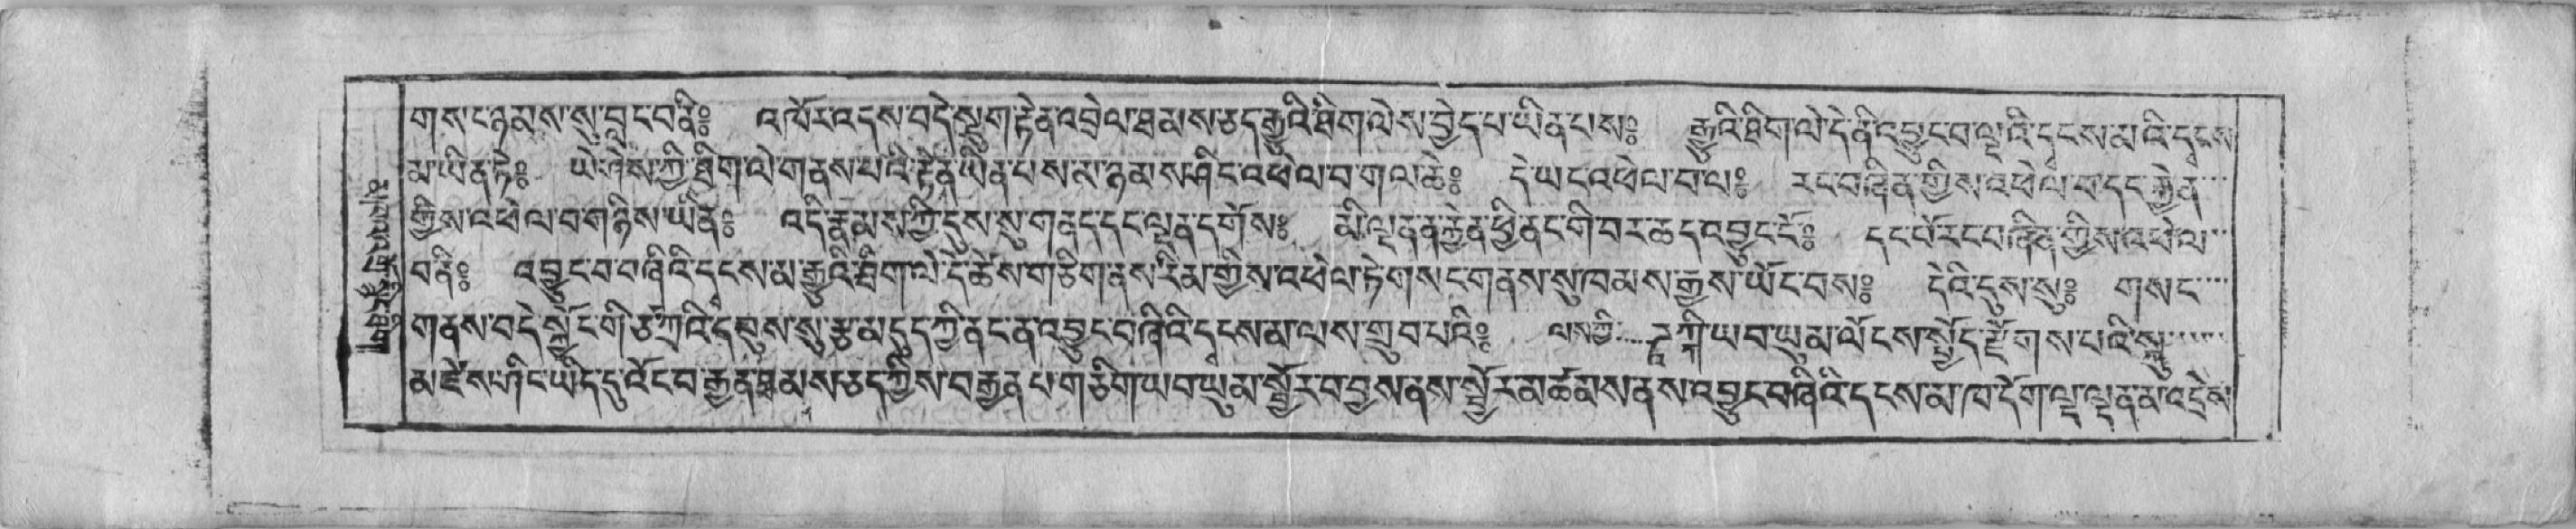 གསང་ཉམས་སུ་བླང་བནི༔ འཁོར་འདས་བདེ་སྡུག་རྟེན་འབྲེལ་ཐམས་ཅད་རྒྱུའི་ཐིག་ལེས་བྱེད་པ་ཡིན་པས༔ རྒྱུའི་ཐིག་ལེ་དེ་ནི་འབྱུང་བ་ལྔའི་དྭངས་མའི་དྭངས
མ་ཡིན་ཏེ༔ ཡེ་ཤེས་ཀྱི་ཐིག་ལེ་གནས་པའི་རྟེན་ཡིན་པས་མ་ཉམས་ཤིང་འཕེལ་བ་གལ་ཆེ༔ དེ་ཡང་འཕེལ་བ་ལ༔ རང་བཞིན་གྱིས་འཕེལ་བ་དང་རྐྱེན་
གྱིས་འཕེལ་བ་གཉིས་ཡིན༔ འདི་རྣམས་ཀྱི་དུས་སུ་གནད་དང་ལྡན་དགོས༔ མི་ལྡན་ན་རྐྱེན་ཕྱི་ནང་གི་བར་ཆད་འབྱུང་ངོ༔ དང་པོ་རང་བཞིན་གྱིས་འཕེལ་
བནི༔ འབྱུང་བ་བཞིའི་དྭངས་མ་རྒྱུའི་ཐིག་ལེ་དེ་ཚེས་གཅིག་ནས་རིམ་གྱིས་འཕེལ་ཏེ་གསང་གནས་སུ་ཁམས་རྒྱས་ཡོང་བས༔ དེའི་དུས་སུ༔ གསང་
གནས་བདེ་སྐྱོང་གི་ཙཀྲའི་དབུས་སུ་རྩ་མདུད་ཀྱི་ནང་ན་འབྱུང་བཞིའི་དྭངས་མ་ལས་གྲུབ་པའི༔ ལས་ཀྱི་ཌཱཀྐི་ཡབ་ཡུམ་ལོངས་སྤྱོད་རྫོགས་པའི་སྐུ་
མཛེས་ཤིང་ཡིད་དུ་འོང་བ་རྒྱན་ཐམས་ཅད་ཀྱིས་བརྒྱན་པ་གཅིག་ཡབ་ཡུམ་སྦྱོར་བ་བྱས་ནས་སྦྱོར་མཚམས་ནས་འབྱུང་བཞིའི་དྭངས་མ་ཁ་དོག་ལྔ་ལྡན་མ་འདྲེས